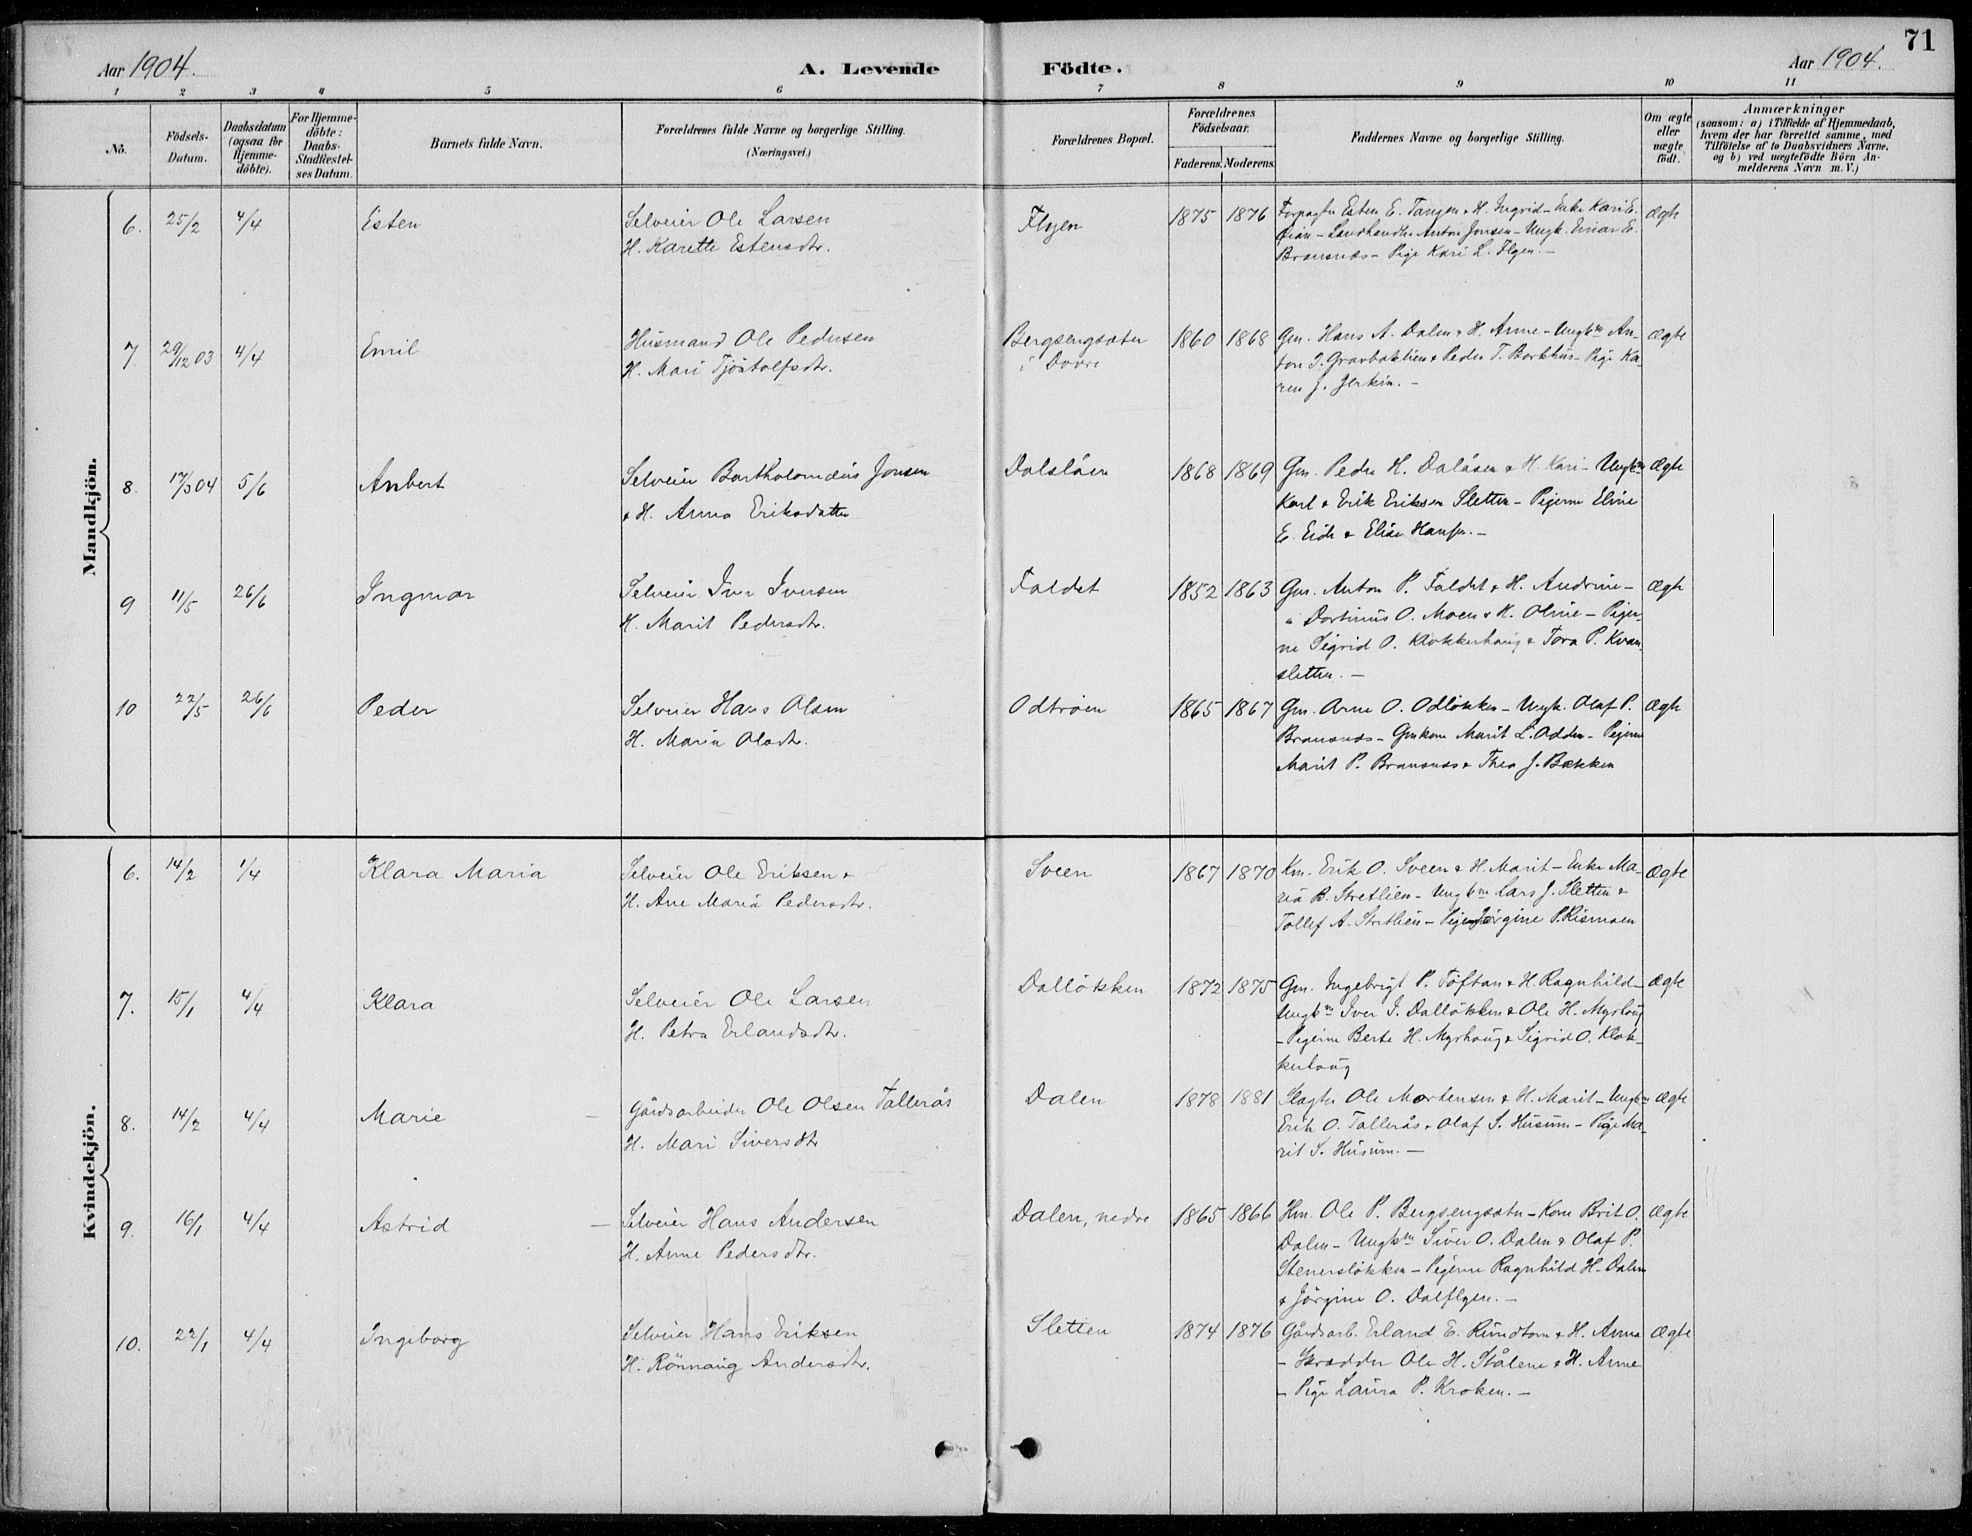 71
Aar 1904.
A. Levende
Födte.
Aar 1904.
1 2 3 4 5 6 7 8 9 10 11
No.
Födsels-
Datum.
Daabsdatum
(ogsaa for
Hjemme-
döbte).
For Hjemme-
döbte:
Daabs-
Stadfæstel-
ses Datum.
Barnets fulde Navn.
Forældrenes fulde Navne og borgerlige Stilling.
(Næringsvei.)
Forældrenes Bopæl.
Forældrenes
Födselsaar.
Faderens. Moderens.
Faddernes Navne og borgerlige Stilling.
Om ægte
eller
uægte
födt.
Anmærkninger
(saasom: a) i Tilfælde af Hjemmedaab,
hvem der har forrettet samme, med
Tilföielse af to Daabsvidners Navne,
og b) ved uægtefödte Börn An-
melderens Navn m. V.)
Mandkjön.
6. 25/2 4/4 Esten
Selveier Ole Larsen
H. Karette Estensdtr.
Flyen
1875 1876
Forpagter Esten E. Tangen & H. Ingrid - Enke Kari E.
- Landhandler Anton Jonsen - Ungk. Einar E.
Bransnæs - Pige Kari L. Flyen. -
Ægte
7. 29/12 03 4/4 Emil
Husmand Ole Pedersen
H. Mari Tjöstolfsdtr.
Bergsengsæter
i Dovre
1860 1868
Gm. Hans A. Dalen & H. Anne - Ungkm An-
ton I. Gravbæklien & Peder T. Borkhus - Pige Ka-
ren J. Jerkin. -
Ægte
8. 17/3 04 5/6 Anbert
Selveier Bartholomæus Jonsen
& H. Anna Eriksdatter
Dalslåen
1868 1869
Gm. Peder H. Dalåsen & H. Kari - Ungkm
Karl & Erik Eriksen Sletten - Pigerne Eline
E. Eide & Elise Hansen. -
Ægte
9 11/5 26/6 Ingmar
Selveier Iver Iversen
H. Marit Pedersdtr.
Faldet
1852 1863
Gm. Anton P. Faldet & H. Andrine -
" Dortinus O. Moen & H. Oline - Piger-
ne Sigrid O. Klokkerhaug & Tora P. Kvan-
sletten. -
Ægte
10 22/5 26/6 Peder
Selveier Hans Olsen
H. Maria Olsdtr.
Odtröen
1865 1867
Gm. Arne O. Odlökken - Ungk. Olaf P.
Bransnæs - Gmkone Marit L. Odden - Pigerne
Marit P. Bransnæs & Thea J. Bækken
Ægte
Kvindekjön.
6. 14/2 1/4 Klara Maria
Selveier Ole Eriksen &
H. Ane Maria Pedersdtr.
Sveen
1867 1870
Km. Erik O. Sveen & H. Marit - Enke Ma-
ria B. Stretlien - Ungkm Lars J. Sletten &
Tollef A. Stretlien - Pige Jörgine P. Rismoen
Ægte
7. 15/1 4/4 Klara
Selveier Ole Larsen
H. Petra Erlandsdtr.
Dallökken
1872 1875
Gm. Ingebrigt P. Töftan & H. Ragnhild -
Ungkm Iver I. Dallökken & Ole H. Myrhaug
- Pigerne Berte H. Myrhaug & Sigrid O. Klok-
kerhaug
Ægte
8. 14/2 4/4 Marie
Gårdsarbeider Ole Olsen Tallerås
H. Mari Siversdtr
Dalen
1878 1881
Slagter Ole Mortensen & H. Marit - Ungkm
Erik O. Tallerås & Olaf S. Husum - Pige Ma-
rit S. Husum. -
Ægte
9. 16/1 4/4 Astrid
Selveier Hans Andersen
H. Anne Pedersdtr.
Dalen, nedre
1865 1866
Hm. Ole P. Bergsengsæter - Kone Brit O.
Dalen - Ungkm Siver O. Dalen & Olaf P.
Stenerslökken - Pigerne Ragnhild H. Dalen
& Jörgine O. Dalflyen. -
Ægte
10. 22/1 4/4 Ingeborg
Selveier Hans Eriksen
H. Rönnaug Andersdtr.
Sletten
1874 1876
Gårdsarb. Erland E. Rundtom & H. Anna
- Skrædder Ole H. Stålene & H. Anne
- Pige Laura P. Kroken. -
Ægte